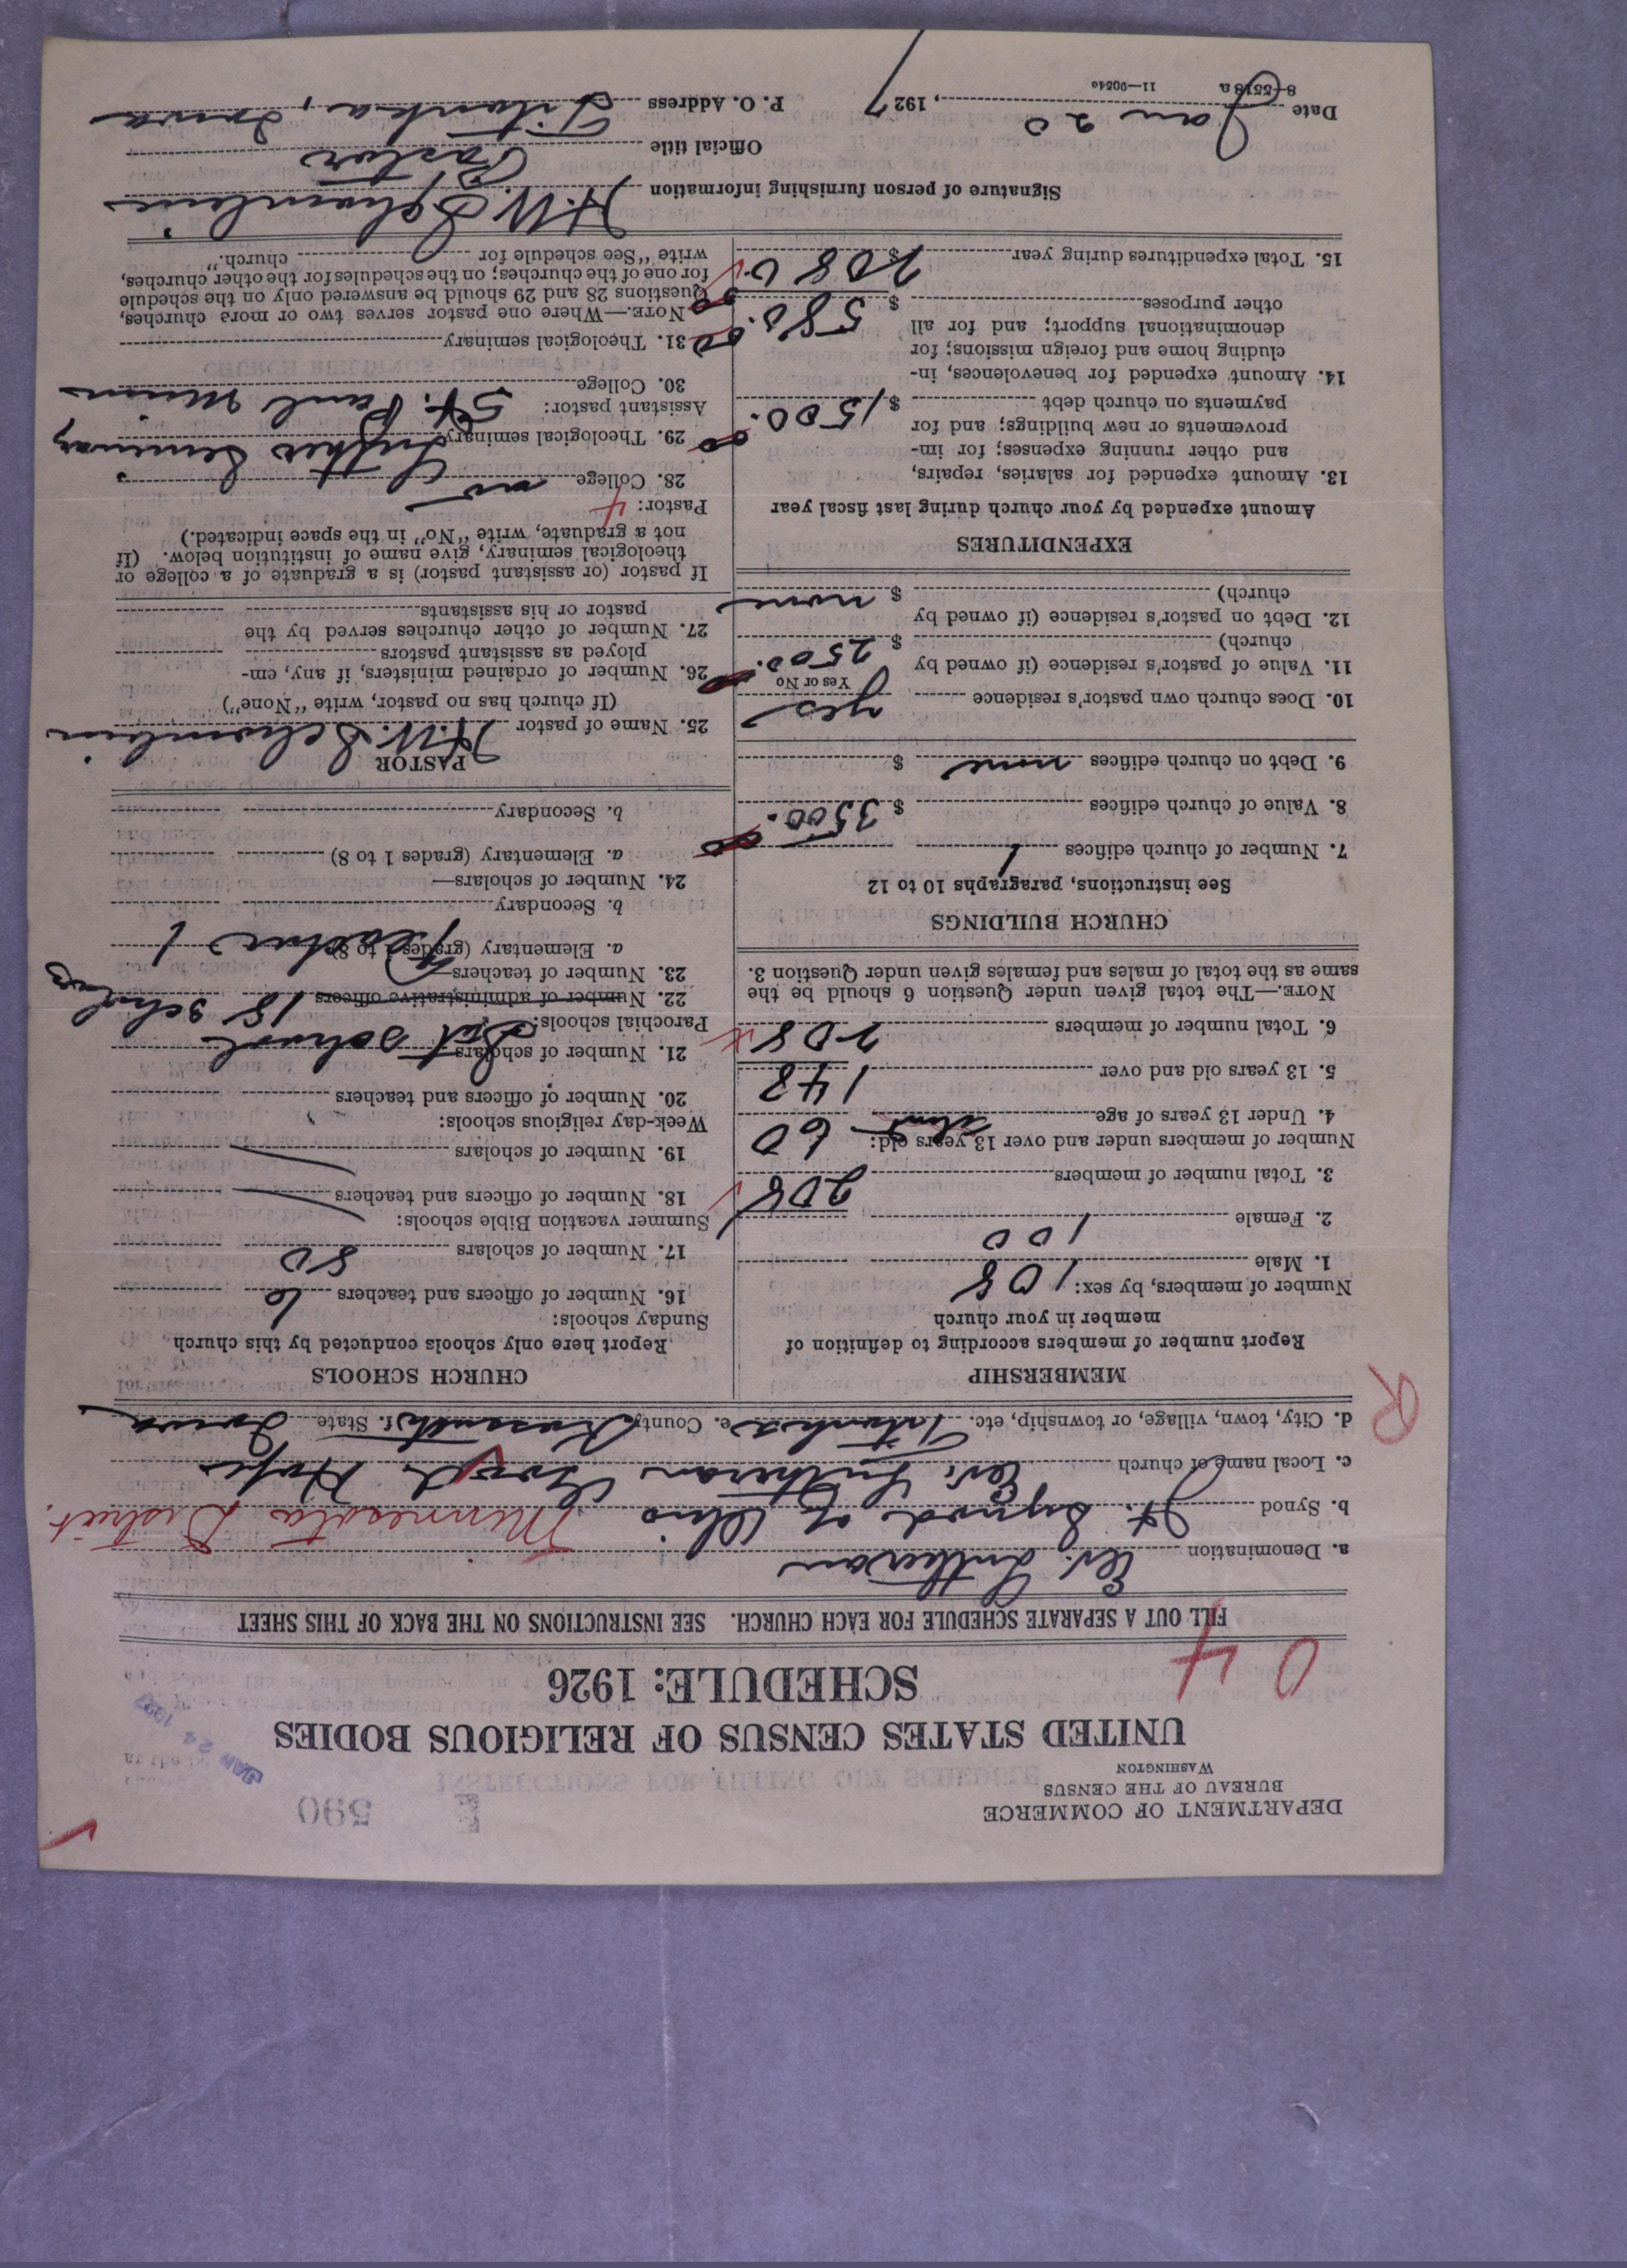 DEPARTMENT OF COMMERCE
BUREAU OF THE CENSUS
WASHINGTON
E 590
JAN 24 1927
UNITED STATES CENSUS OF RELIGIOUS BODIES
SCHEDULE: 1926
0 4
FILL OUT A SEPARATE SCHEDULE FOR EACH CHURCH. SEE INSTRUCTIONS ON THE BACK OF THIS SHEET
a. Denomination Ev. Lutheran
b. Synod Jt. Synod of Ohio Minnesota District.
c. Local name of church Ev. Lutheran Good Hope
d. City, town, village, or township, etc. Titonka e. County Kossuth f. State Iowa
R
MEMBERSHIP
Report number of members according to definition of
member in your church
Number of members, by sex:
1. Male 108
2. Female 100
3. Total number of members 208
Number of members under and over 13 years old:
4. Under 13 years of age about 60
5. 13 years old and over 148
6. Total number of members 208
NOTE.—The total given under Question 6 should be the
same as the total of males and females given under Question 3.
CHURCH BUILDINGS
See instructions, paragraphs 10 to 12
7. Number of church edifices 1
8. Value of church edifices $ 3500.00
9. Debt on church edifices none $
10. Does church own pastor's residence yes
Yes or No
11. Value of pastor's residence (if owned by
church) $ 2500.00
12. Debt on pastor's residence (if owned by
church) $ none
EXPENDITURES
Amount expended by your church during last fiscal year
13. Amount expended for salaries, repairs,
and other running expenses; for im-
provements or new buildings; and for
payments on church debt $ 1500.00
14. Amount expended for benevolences, in-
cluding home and foreign missions; for
denominational support; and for all
other purposes $ 580.00
15. Total expenditures during year $ 2080
CHURCH SCHOOLS
Report here only schools conducted by this church.
Sunday schools:
16. Number of officers and teachers 6
17. Number of scholars 80
Summer vacation Bible schools:
18. Number of officers and teachers
19. Number of scholars
Week-day religious schools:
20. Number of officers and teachers
21. Number of scholars
Sat school
Parochial schools: 18 scholars
22. Number of administrative officers
23. Number of teachers—
a. Elementary (grades 1 to 8) Teacher 1
b. Secondary
24. Number of scholars—
a. Elementary (grades 1 to 8)
b. Secondary
PASTOR
25. Name of pastor H.W. Schamlein
(If church has no pastor, write "None")
26. Number of ordained ministers, if any, em-
ployed as assistant pastors
27. Number of other churches served by the
pastor or his assistants
If pastor (or assistant pastor) is a graduate of a college or
theological seminary, give name of institution below. (If
not a graduate, write "No" in the space indicated.)
Pastor: 4
28. College no
29. Theological seminary Luther Seminary
St. Paul Minn
Assistant pastor:
30. College
31. Theological seminary
NOTE.—Where one pastor serves two or more churches,
Questions 28 and 29 should be answered only on the schedule
for one of the churches; on the schedules for the other churches,
write "See schedule for church."
Signature of person furnishing information H.W. Schamlein
Official title Pastor
Date Jan 20, 1927 P. O. Address Titonka, Iowa
8-5518a 11—90540